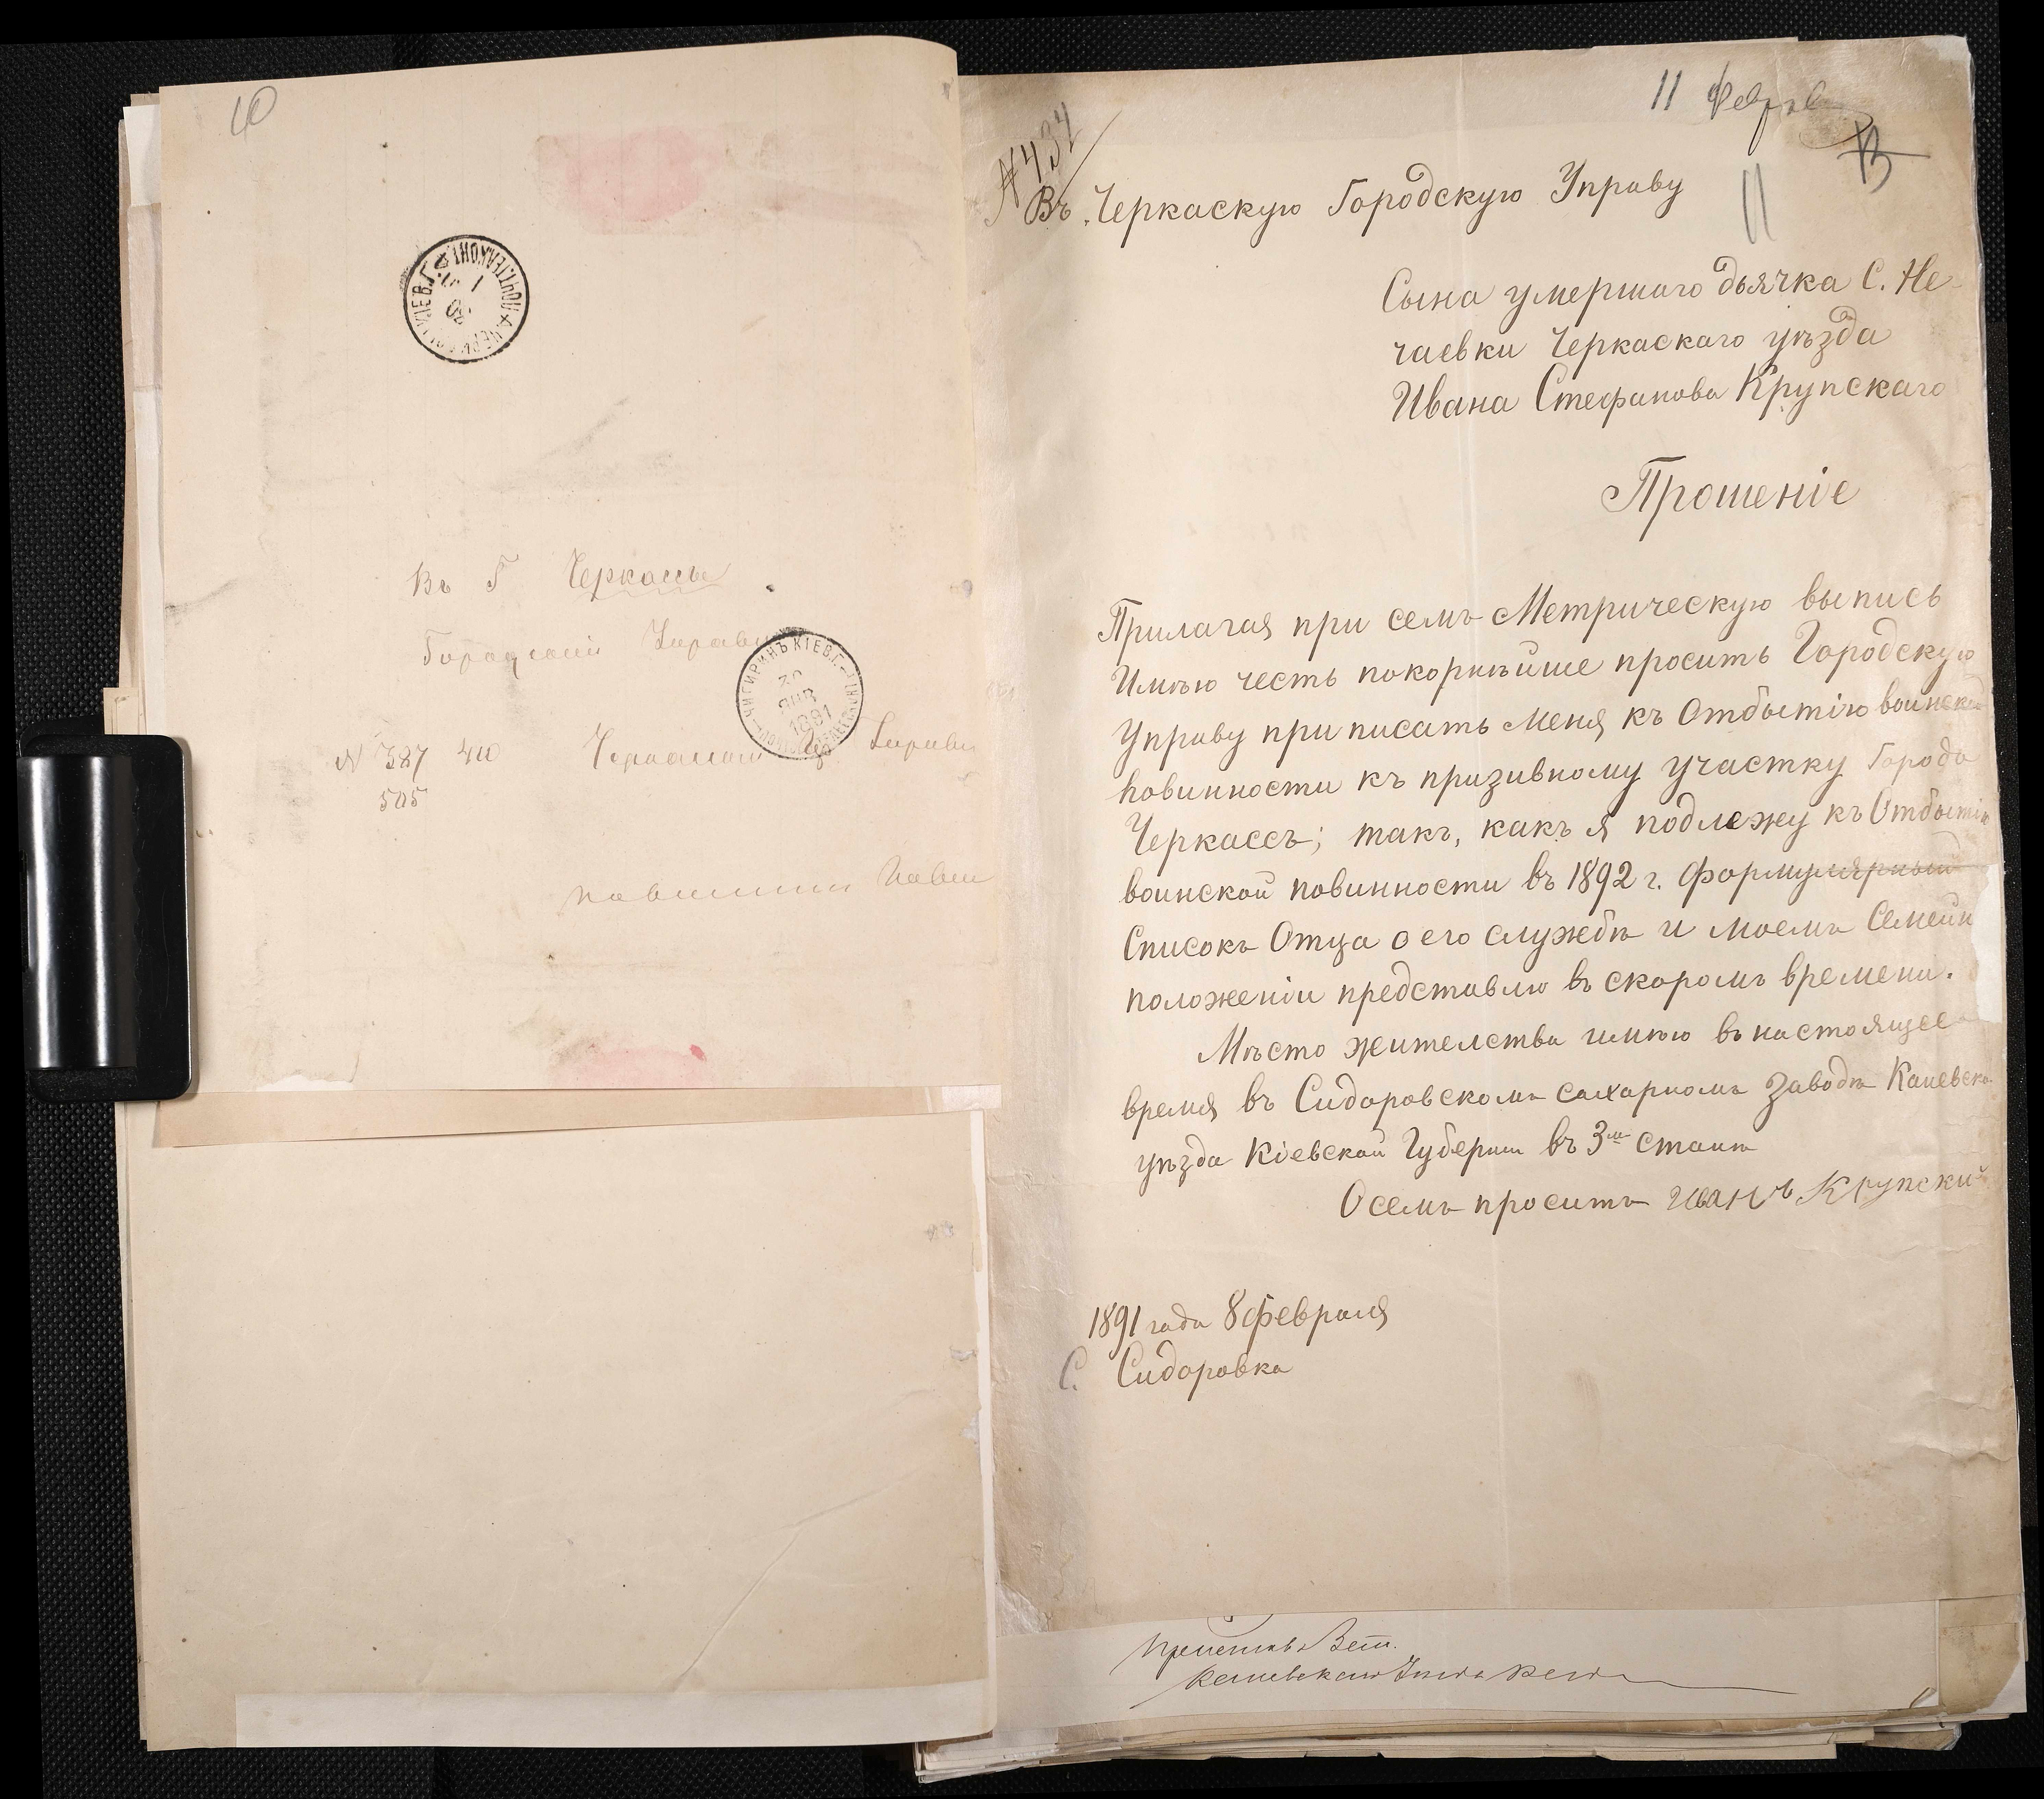 10
Въ Г Черкассы
N 387 410
505
11 Феврал
№ 434
11
Въ Черкаскую Городскую Управу
Сына умершаго дьячка С. Не-
чаевки Черкаскаго уѣзда
Ивана Стефанова Крупскаго
Прошеніе
Прилагая при семъ Метрическую выпись
Имѣю честь покорнѣйше просить Городскую
Управу приписать меня къ Отбытію воинской
повинности къ призивному участку Города
Черкассъ; такъ, какъ я подлежу къ Отбытію
воинской повинности въ 1892 г. Формулярный
Списокъ Отца о его службѣ и моемъ Семейн
положеніи представлю въ скоромъ времени.
Мѣсто жителства имѣю въ настоящее
время въ Сидоровскомъ сахарномъ заводѣ Каневска
уѣзда Кіевской Губерніи въ 3мъ станѣ
О семъ проситъ Иванъ Крупский
1891 года 8 февраля
С. Сидоровка